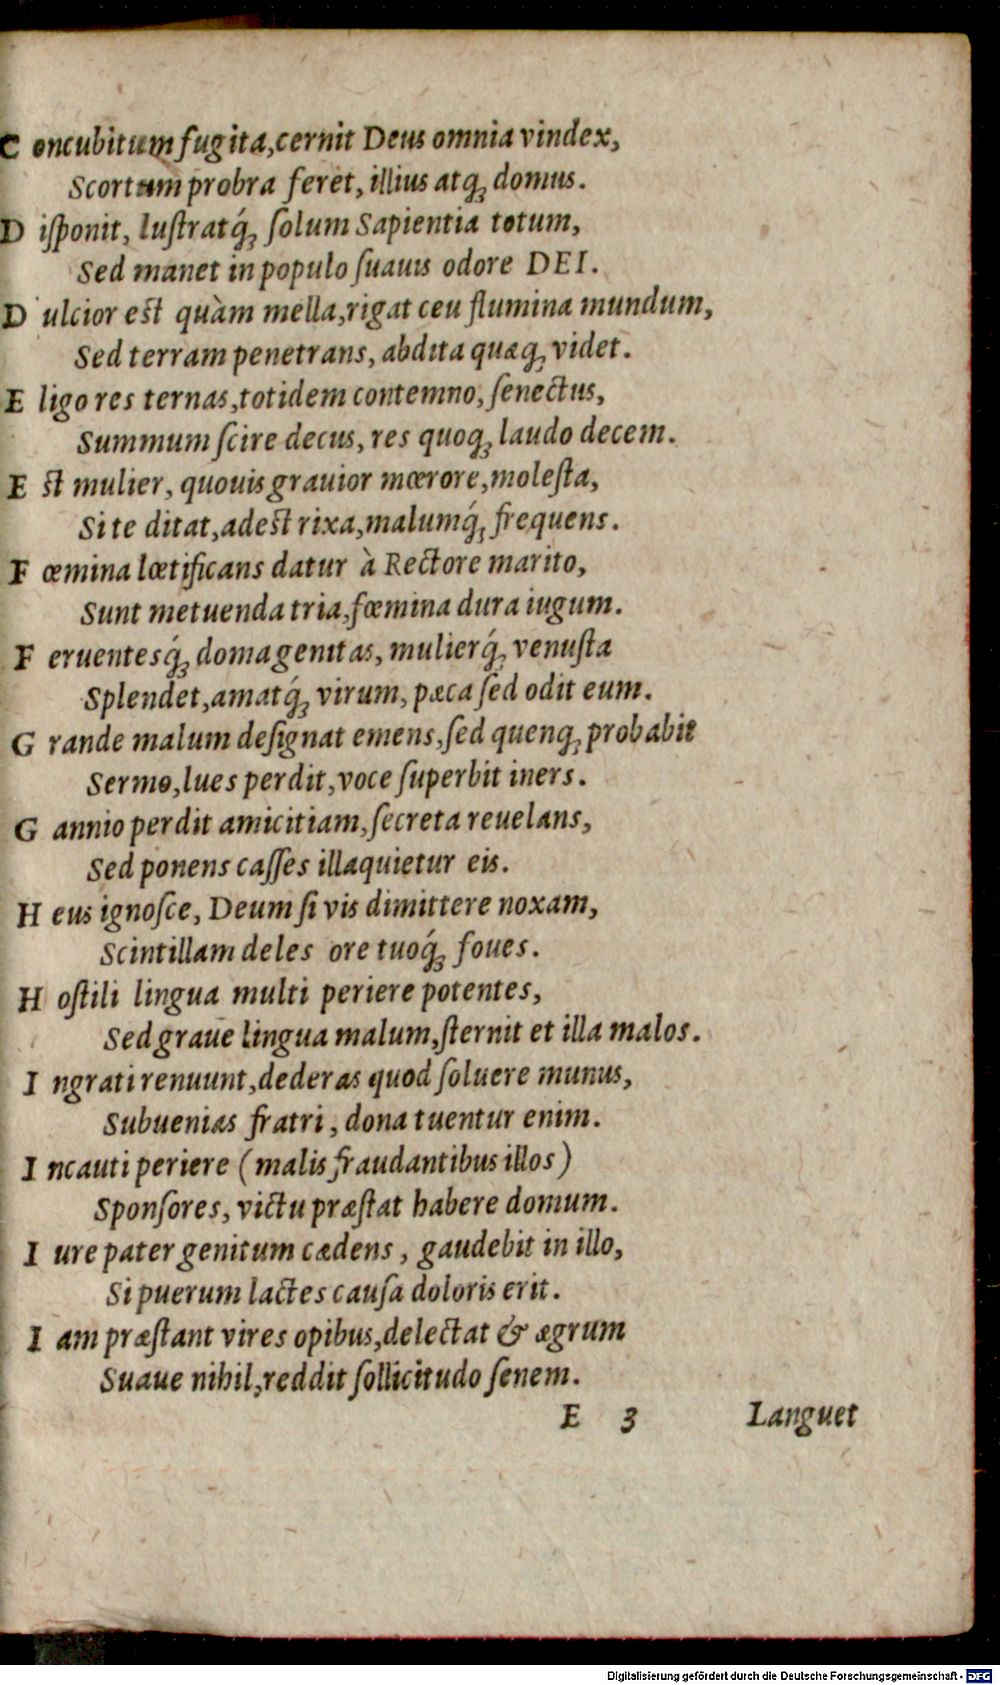 C oncubitum fugita, cernit Deus omnia vindex,
Scortum probra feret, illius atq; domus.
D iſponit, luſtratq́; ſolum Sapientia totum,
Sed manet in populo ſuauis odore DEI.
D ulcior eſt quàm mella, rigat ceu flumina mundum,
Sed terram penetrans, abdita quæq; videt.
E ligo res ternas, totidem contemno, ſenectus,
Summum ſcire decus, res quoq; laudo decem.
E ſt mulier, quouis grauior mœrore, moleſta,
Si te ditat, adeſt rixa, malumq́; frequens.
F œmina lœtificans datur à Rectore marito,
Sunt metuenda tria, fœmina dura iugum.
F eruentesq́; doma genitas, mulierq́; venuſta
Splendet, amatq́; virum, pæca ſed odit eum.
G rande malum deſignat emens, ſed quenq; probabit
Sermo, lues perdit, voce ſuperbit iners.
G annio perdit amicitiam, ſecreta reuelans,
Sed ponens caſſes illaquietur eis.
H eus ignoſce, Deum ſi vis dimittere noxam,
Scintillam deles ore tuoq́; foues.
H oſtili lingua multi periere potentes,
Sed graue lingua malum, ſternit et illa malos.
I ngrati renuunt, dederas quod ſoluere munus,
Subuenias fratri, dona tuentur enim.
I ncauti periere (malis fraudantibus illos)
Sponſores, victu præſtat habere domum.
I ure pater genitum cædens, gaudebit in illo,
Si puerum lactes cauſa doloris erit.
I am præſtant vires opibus, delectat & ægrum
Suaue nihil, reddit ſollicitudo ſenem.
E 3 Languet
Digitalisierung gefördert durch die Deutsche Forschungsgemeinschaft - DFG